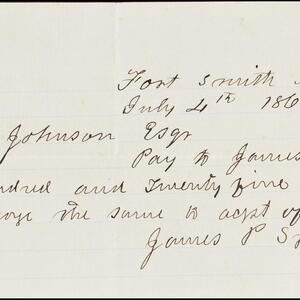 Fort Smith
July 4th 186
Johnson Esqr
Pay to James
ndred and Twenty five
the same to acpt of
James P S